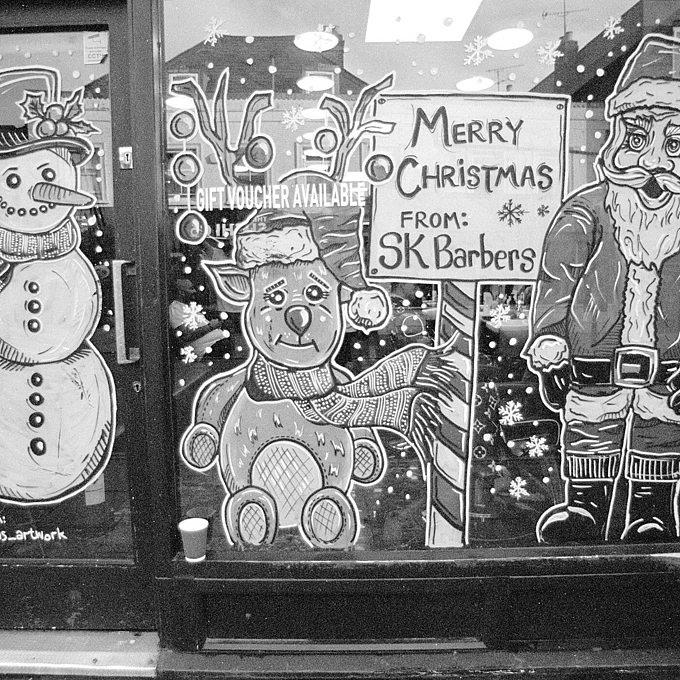 CCT
GIFT VOUCHER AVAILABLE
MERRY
CHRISTMAS
FROM:
SK Barbers
s_artwork